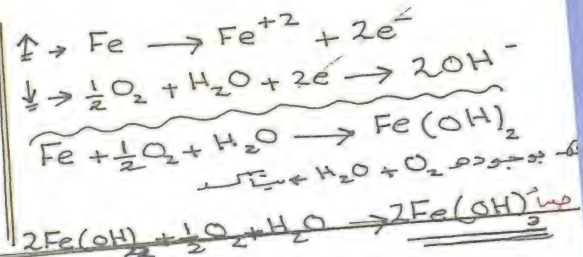 ↑ → Fe → Fe⁺² + 2e⁻
↓ → ½O₂ + H₂O + 2e⁻ → 2OH⁻
Fe + ½O₂ + H₂O → Fe(OH)₂
بوجود H₂O + O₂
2Fe(OH)₂ + ½O₂ + H₂O → 2Fe(OH)₃